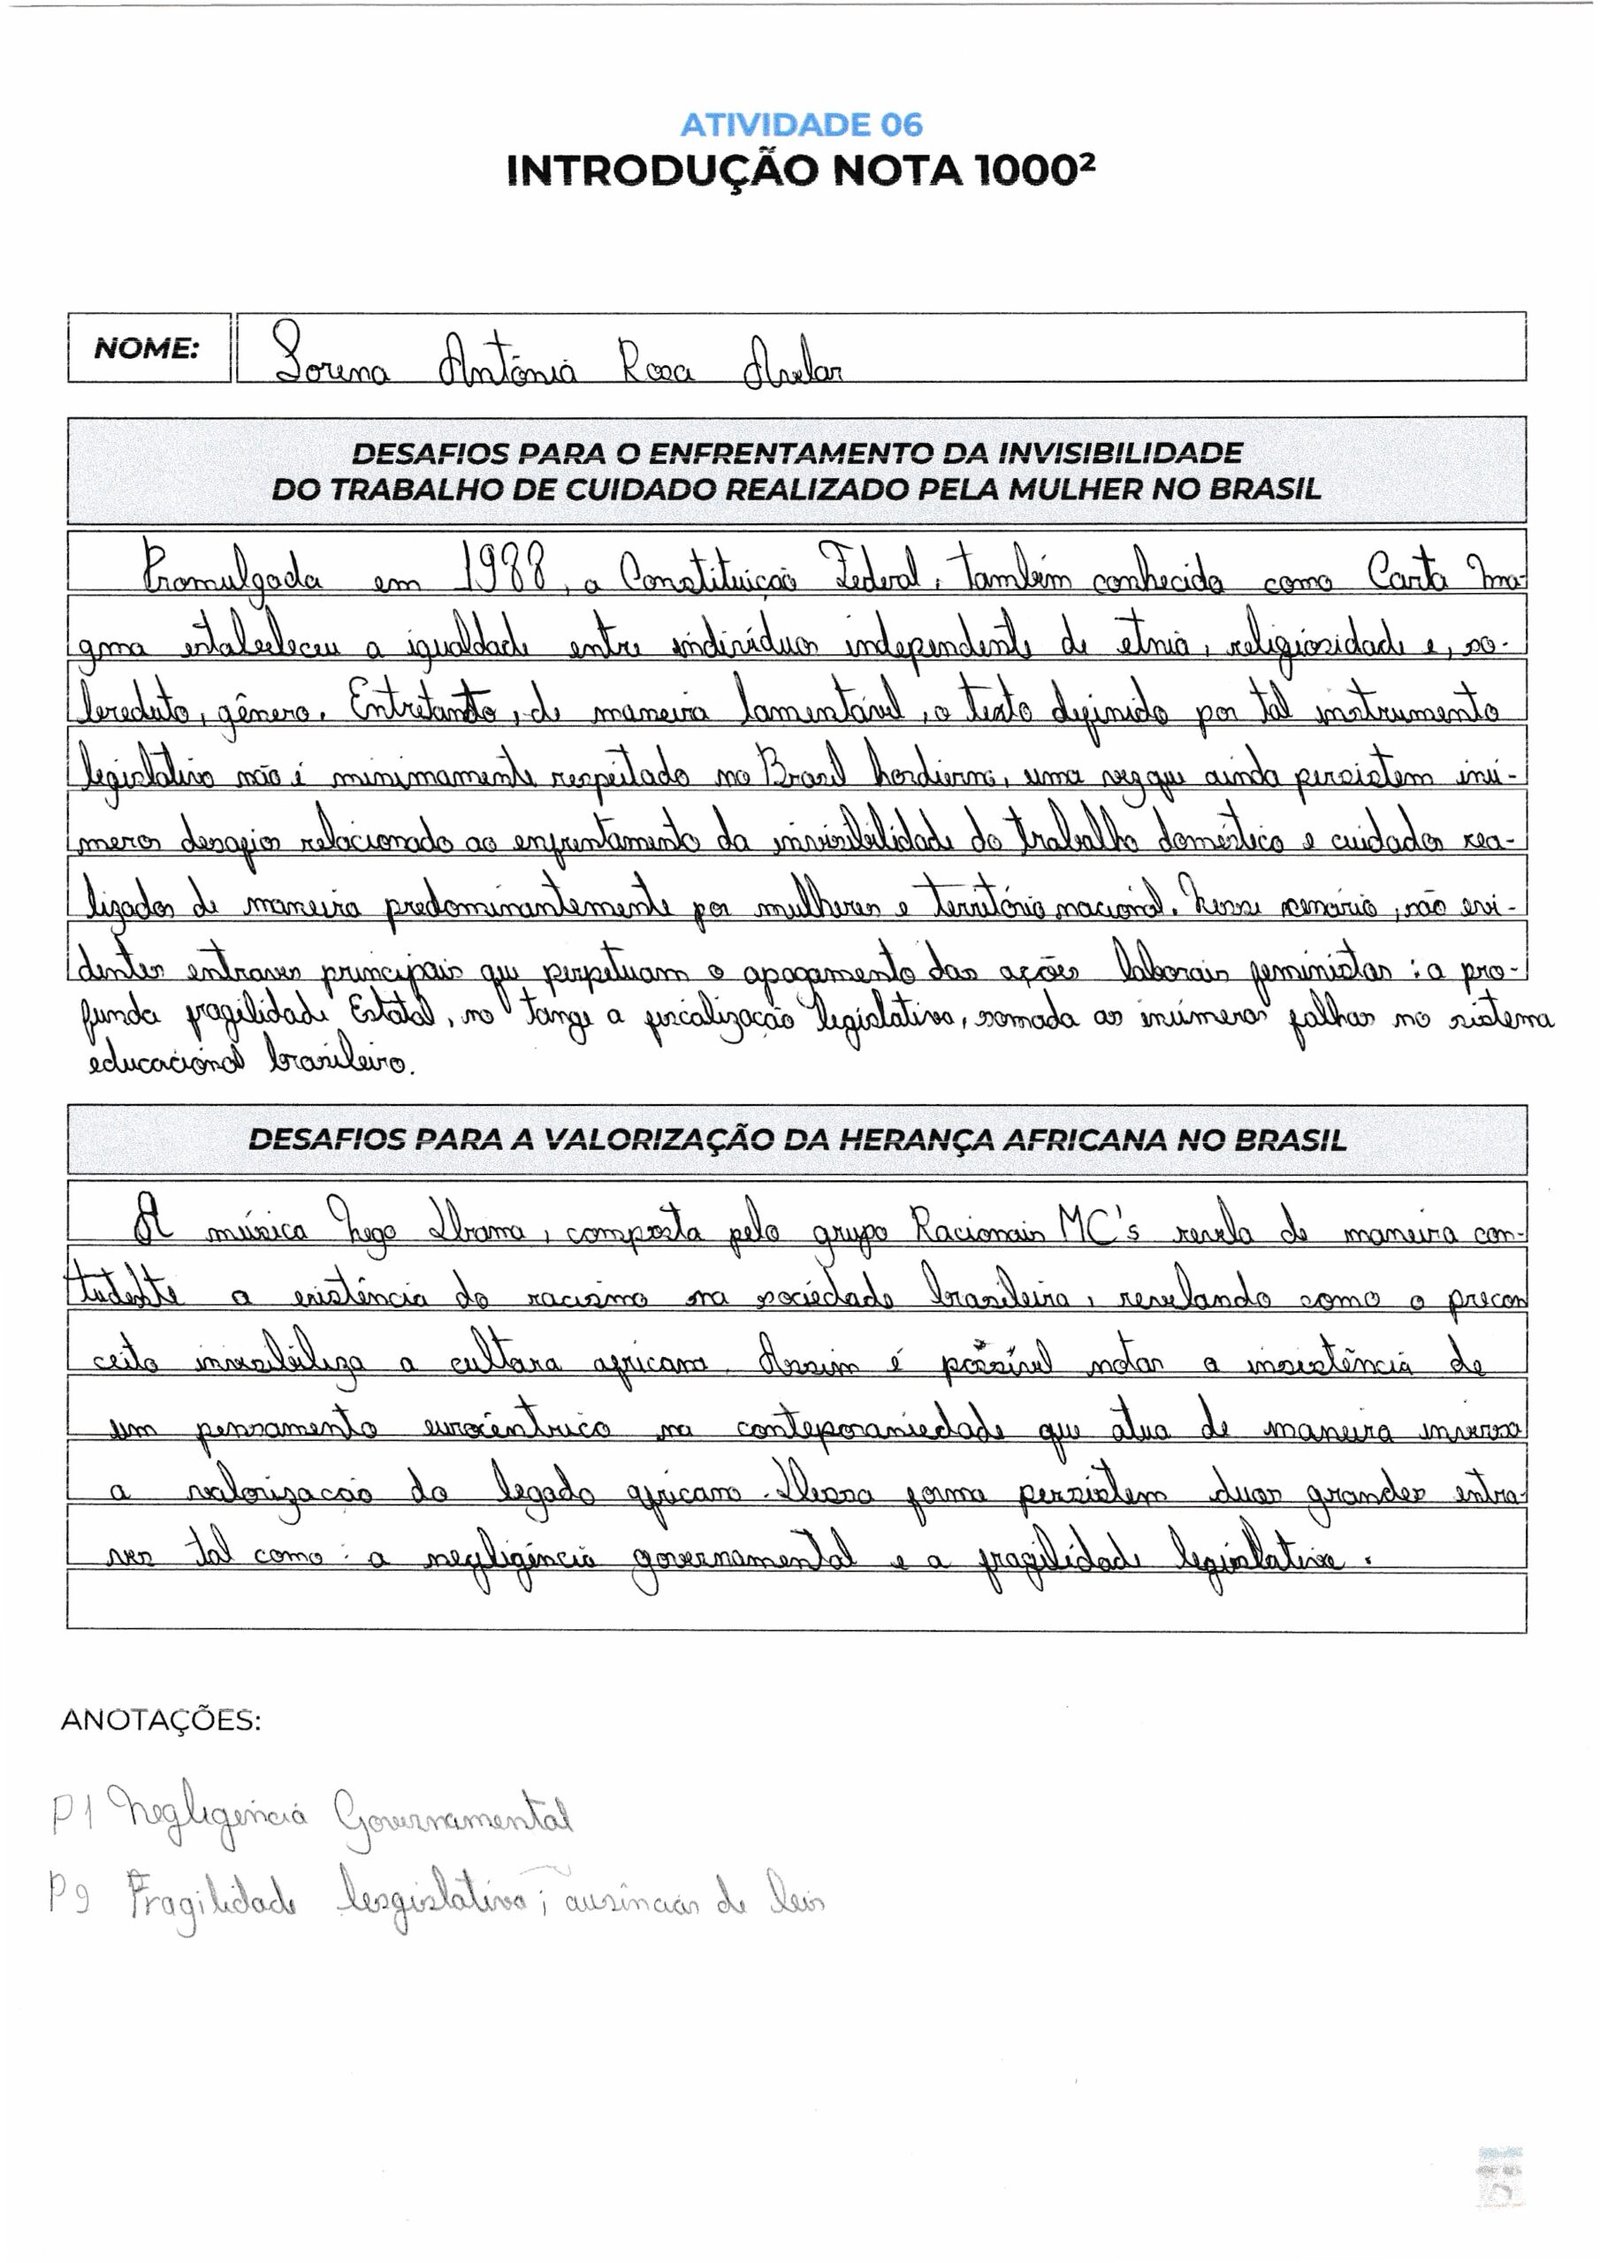 ATIVIDADE 06
INTRODUÇÃO NOTA 1000²
NOME: Lorena Antônia Rosa Avelar
DESAFIOS PARA O ENFRENTAMENTO DA INVISIBILIDADE
DO TRABALHO DE CUIDADO REALIZADO PELA MULHER NO BRASIL
Promulgada em 1988, a Constituição Federal, também conhecida como Carta Ma-
gma estabeleceu a igualdade entre indivíduos independente de etnia, religiosidade e, so-
bretudo, gênero. Entretanto, de maneira lamentável, o texto definido por tal instrumento
legislativo não é minimamente respeitado no Brasil hordierno, uma vez que ainda persistem inú-
meros desafios relacionado ao enfrentamento da invisibilidade do trabalho doméstico e cuidados rea-
lizados de maneira predominantemente por mulheres e território nacional. Nesse cenário, são evi-
dentes entraves principais que perpetuam o apagamento das ações laborais feministas: a pro-
funda fragilidade Estatal, no tange a fiscalização legislativa, somada as inúmeras falhas no sistema
educacional brasileiro.
DESAFIOS PARA A VALORIZAÇÃO DA HERANÇA AFRICANA NO BRASIL
A música Nego Drama, composta pelo grupo Racionais MC's revela de maneira con-
tudente a existência do racismo na sociedade brasileira, revelando como o precon
ceito invisibiliza a cultura africana. Assim é possível notar a insistência de
um pensamento eurocêntrico na conteporaniedade que atua de maneira inversa
a valorização do legado africano. Dessa forma persistem duas grandes entra-
ves tal como: a negligência governamental e a fragilidade legislativa.
ANOTAÇÕES:
P1 Negligência Governamental
P2 Fragilidade lesgislativa; ausências de leis